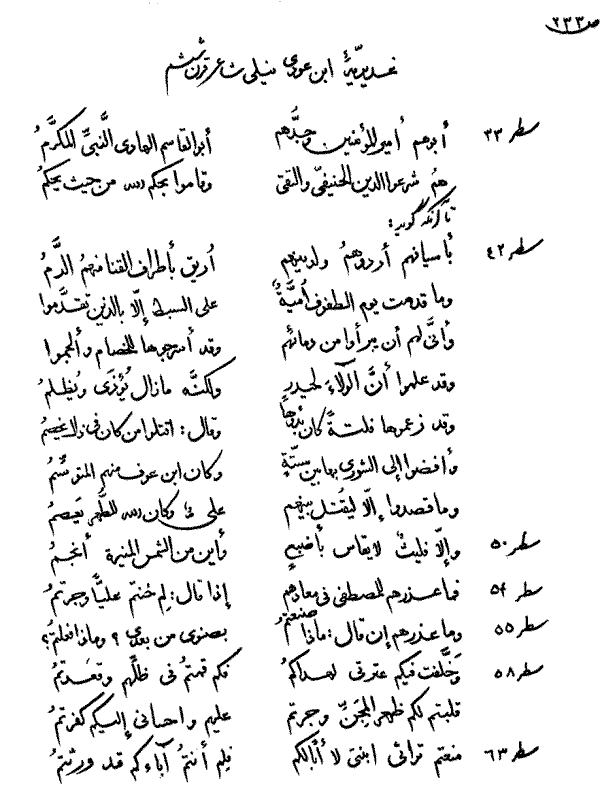 ص ٢٣٣
غديريّهٔ ابن عودى نيلى شاعر قرن ششم
سطر ٣٣ أبوهم أمير المؤمنين وجدُّهم أبو القاسم الهادى النَّبىّ المكرَّمُ
همُ شرعوا الدين الحنيفىّ والتقى وقاموا بحكم الله من حيث يحكمُ
تا آنكه گويد:
سطر ٤٢ بأسيافهم أردوهمُ ولدينهم أريق بأطراف القنا منهمُ الدَّمُ
وما قدمت يوم الطفوف أميَّةٌ على السبط إلّا بالذين تقدَّموا
وأنَّى لهم أن يبرأوا من دمائهم وقد أسرجوها للخصام وألجموا
وقد علموا أنَّ الولاءَ لحيدرٍ ولكنَّه مازال يُؤْذَى ويُظلمُ
وقد زعموها فلتةً كان بدؤها وقال: اقتلوا من كان فى ذلك يخصمُ
وأفضوا إلى الشورى بها بين ستَّةٍ وكان ابن عوف منهم المتوسِّمُ
وما قصدوا إلّا ليُقتل بينهم علىٌّ وكان الله للطُّهر يَعصِمُ
سطر ٥٠ وإلّا فليثٌ لا يقاس بأضبعٍ وأين من الشمس المنيرة أنجمُ
سطر ٥٤ فما عذرهم للمصطفى فى معادهم إذا قال: لِم خُنتم عليًّا وجرتمُ
سطر ٥٥ وما عذرهم إن قال: ماذا صنعتمُ بصنوى من بعدى؟ وماذا فعلتمُ؟
سطر ٥٨ وخلَّفت فيكم عترتى لهداكمُ فكم قمتمُ فى ظلّهم وقعدتمُ
قلبتم لهم ظهر المِجَنِّ وجرتم عليهم واحسانى إليكم كفرتمُ
سطر ٦٣ منعتم تراثى ابنتى لا أبالكم فلِم أنتمُ آباءكم قد ورثتمُ